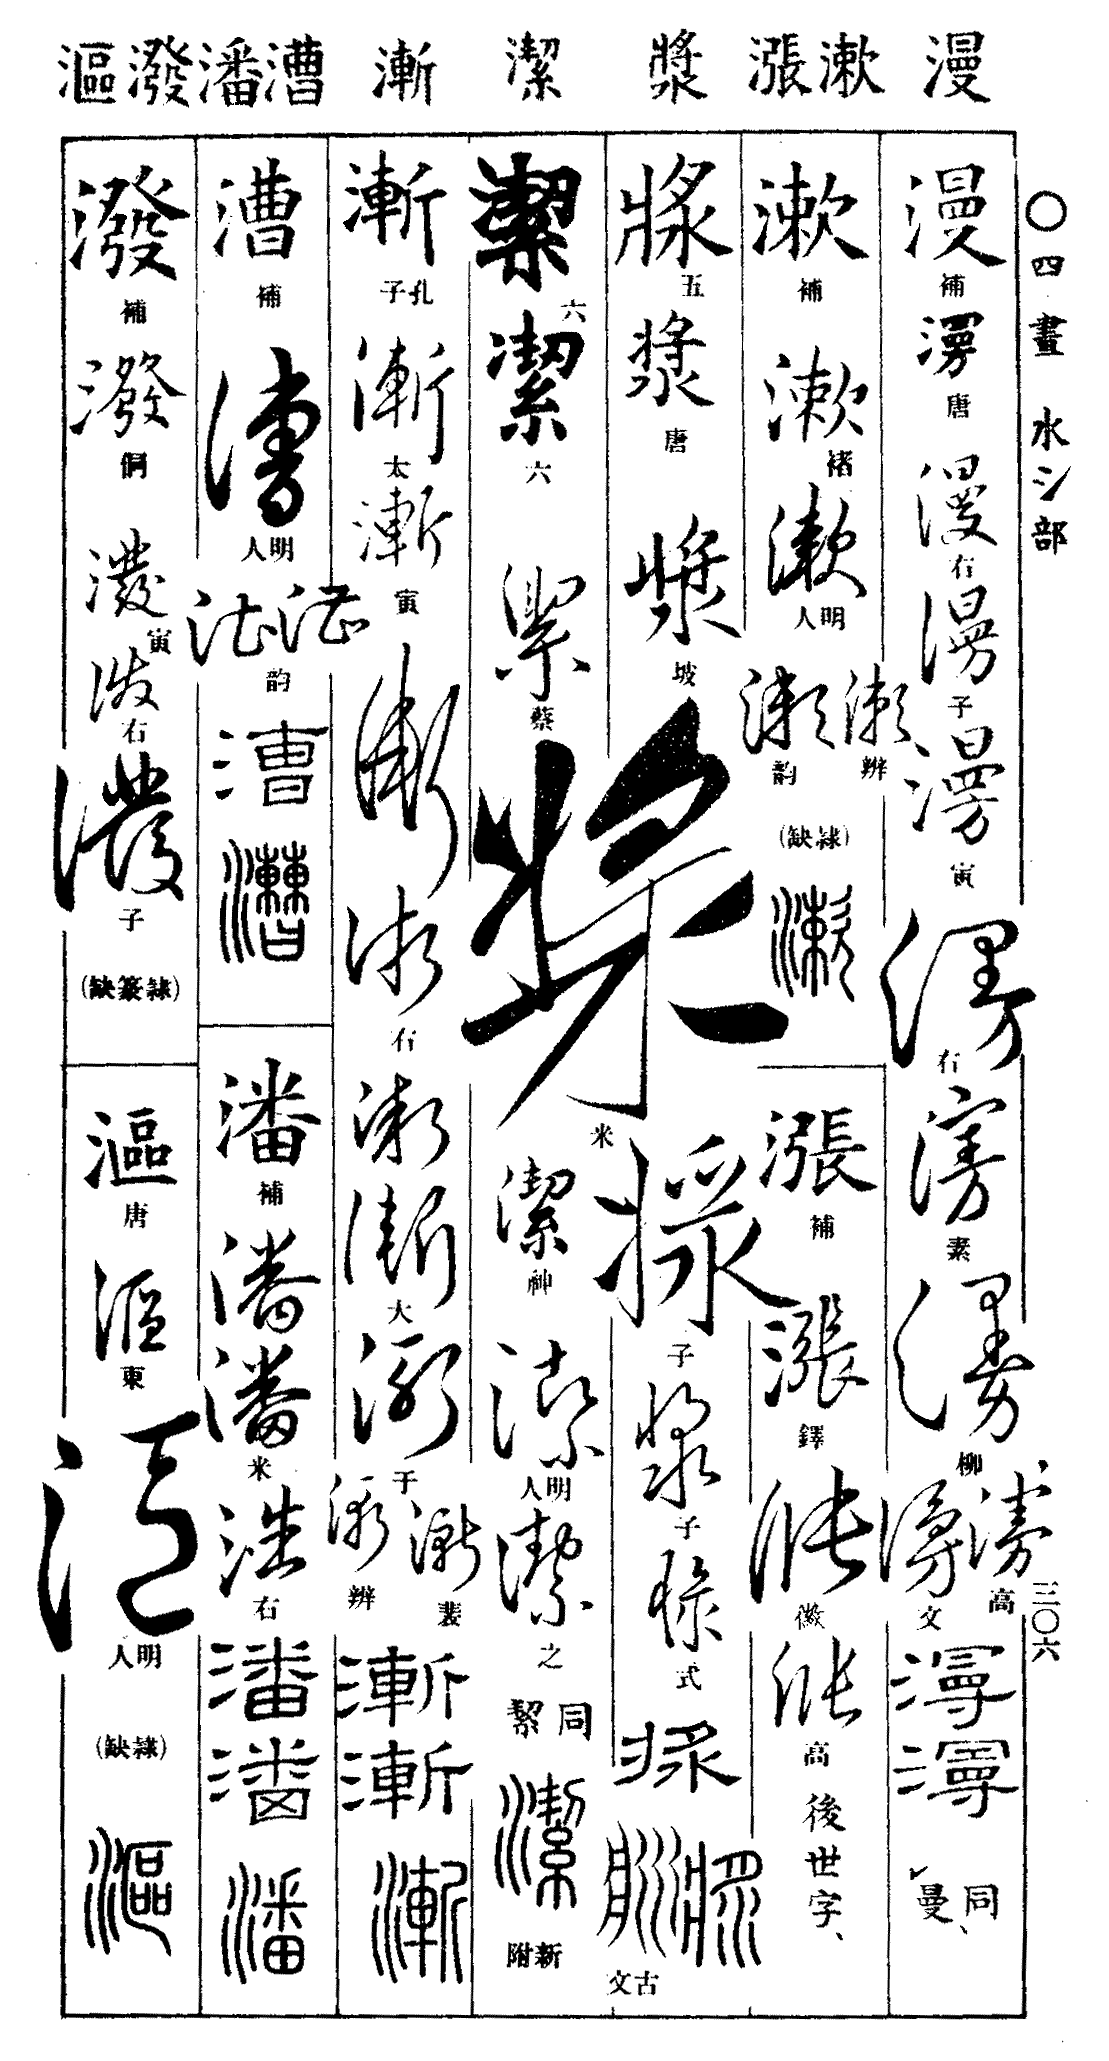 漫 漱漲 漿 潔 漸 漕潘 潑漚
〇四畫 水氵部
三〇六
漫 補
漫 唐
漫 右
漫 子
漫 寅
漫 右
漫 素
漫 柳
漫 高
漫 文
漫
漫
同 曼
漱 補
漱 褚
漱 明人
漱 辨
漱 韵
(隷缺)
漱
漲 補
漲 鐸
漲 徽
漲 高
後世字、
漿 五
漿 唐
漿 坡
漿 米
漿 子
漿 子
漿 式
漿
漿 古文
潔 六
潔 六
潔 蔡
潔 神
潔 明人
潔 之
同 絜
潔 新附
漸 孔子
漸 太
漸 寅
漸
漸 右
漸
漸 大
漸 于
漸 裴
漸 辨
漸
漸
漸
漕 補
漕 明人
漕漕 韵
漕
漕
潘 補
潘
潘 米
潘 右
潘
潘
潘
潑 補
潑 侗
潑 寅
潑 右
潑 子
(隷篆缺)
漚 唐
漚 東
漚 明人
(隷缺)
漚